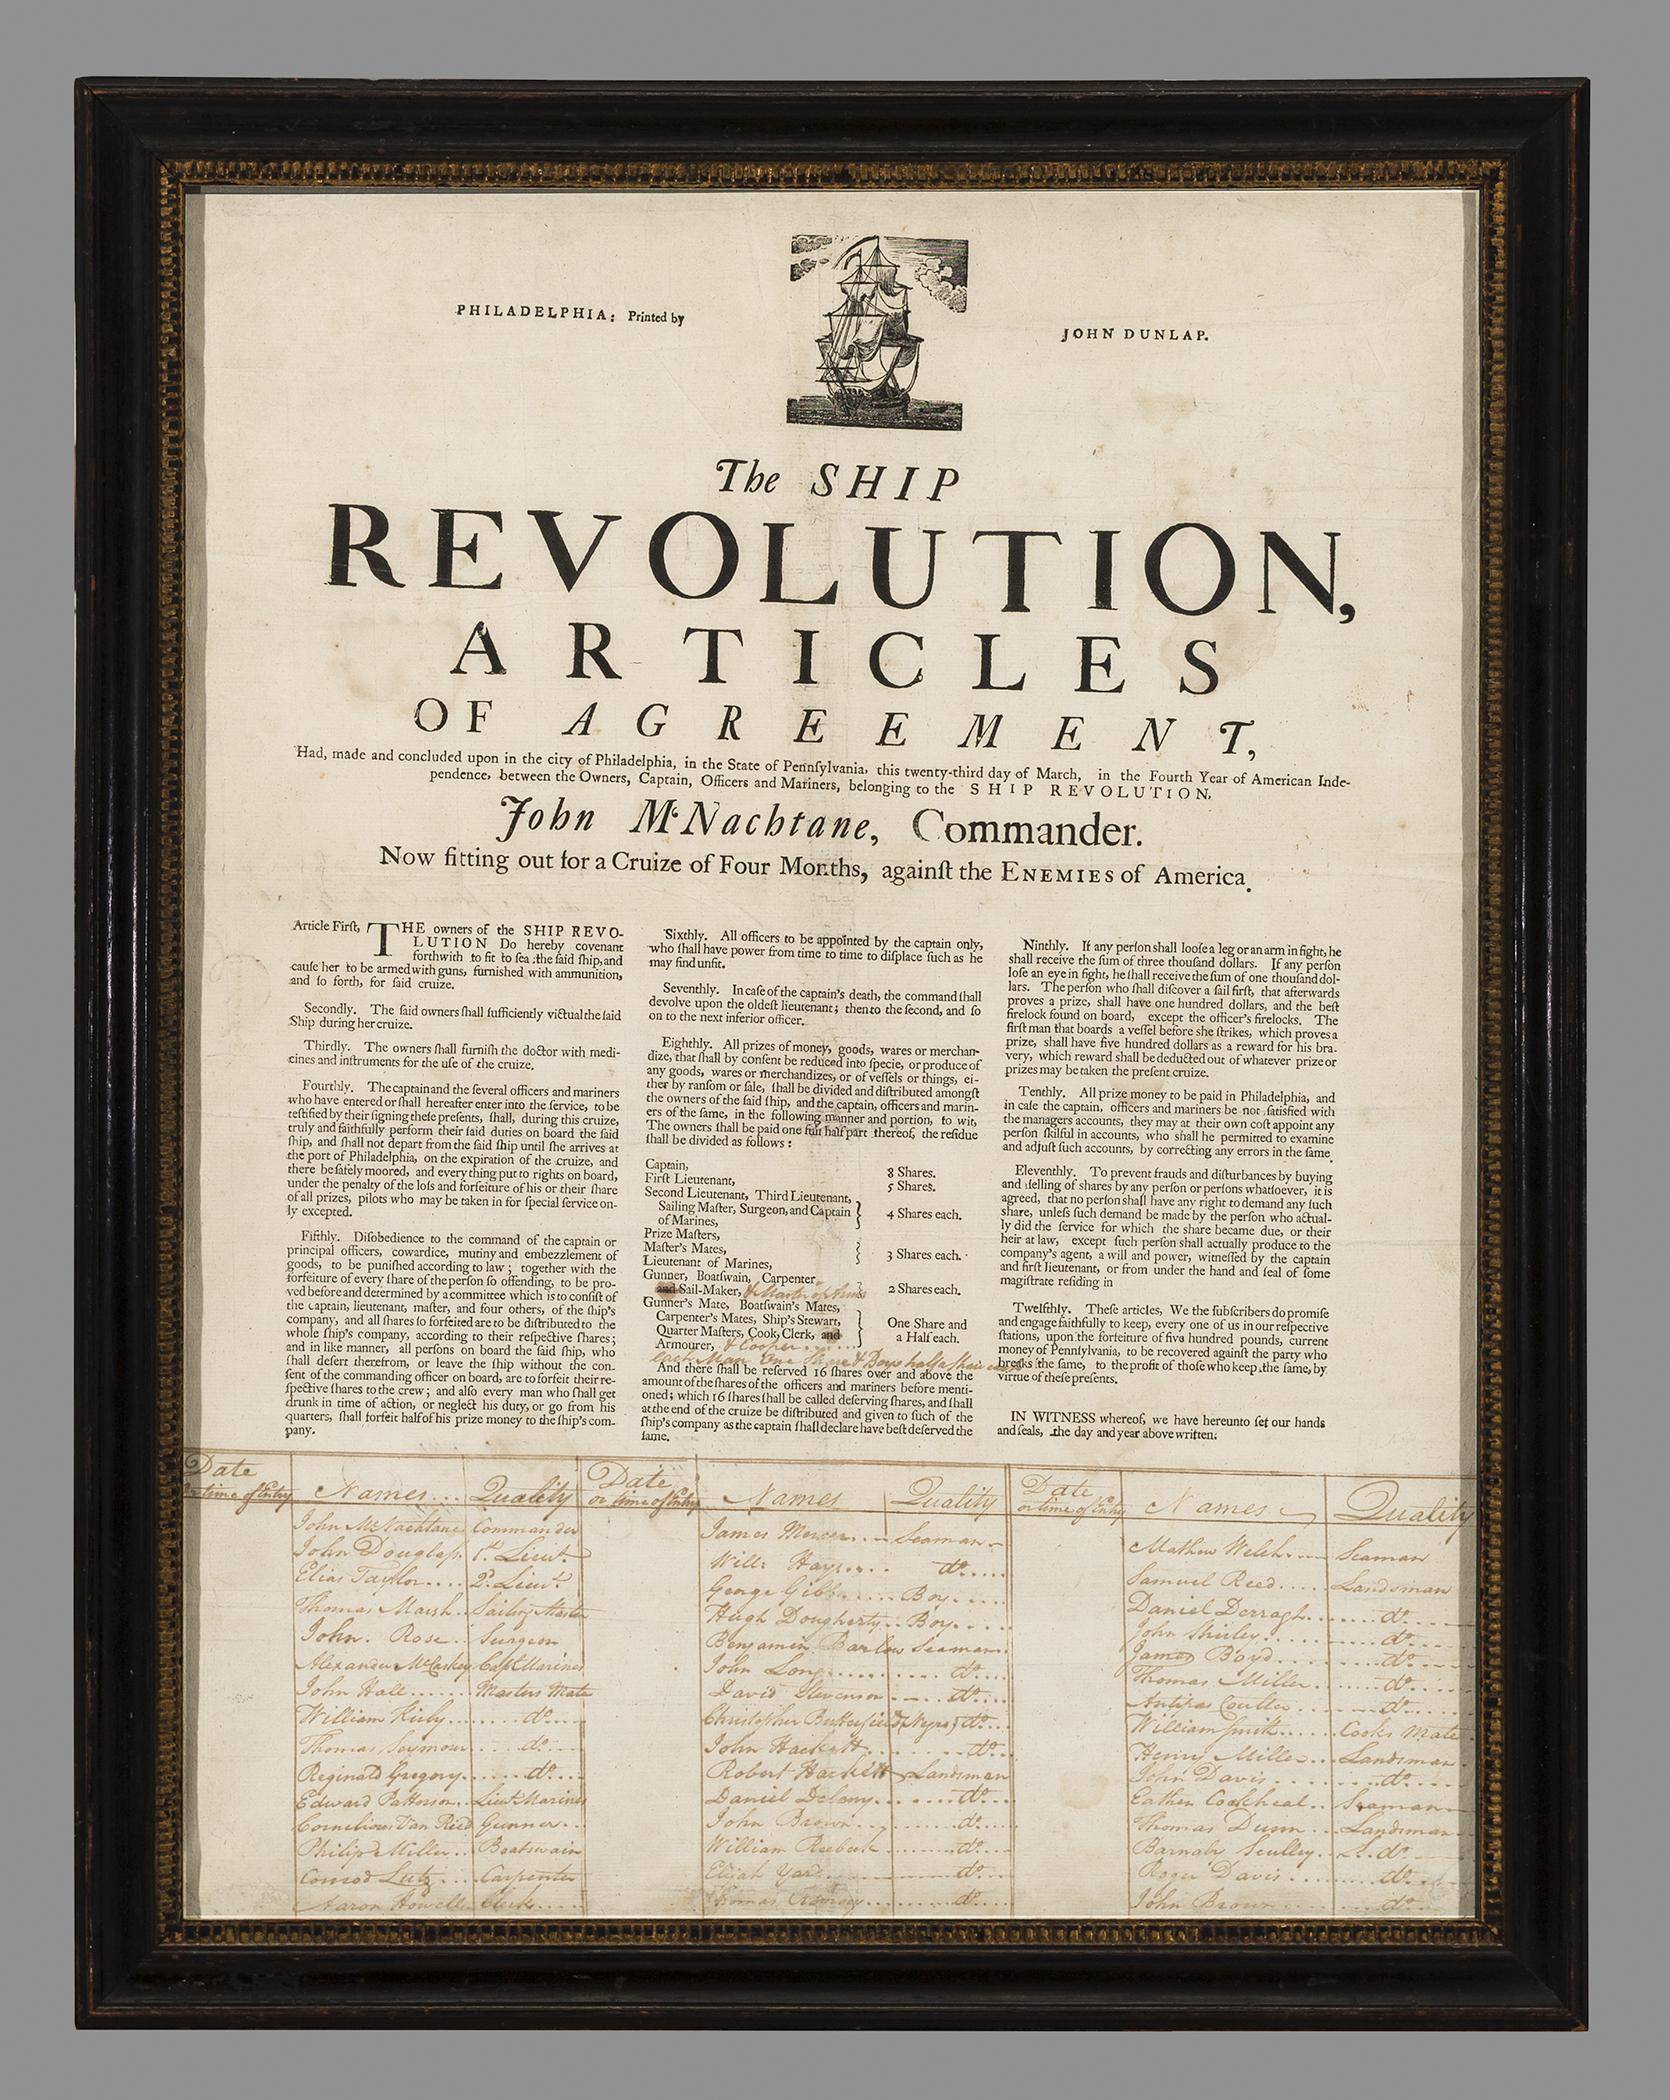 PHILADELPHIA: Printed by
JOHN DUNLAP.
The SHIP
REVOLUTION,
ARTICLES
OF AGREEMENT,
Had, made and concluded upon in the city of Philadelphia, in the State of Pennſylvania, this twenty-third day of March, in the Fourth Year of American Inde-
pendence, between the Owners, Captain, Officers and Mariners, belonging to the SHIP REVOLUTION,
John McNachtane, Commander.
Now fitting out for a Cruize of Four Months, againſt the ENEMIES of America.
Article Firſt, THE owners of the SHIP REVO-
LUTION Do hereby covenant
forthwith to fit to ſea the ſaid ſhip, and
cauſe her to be armed with guns, furniſhed with ammunition,
and ſo forth, for ſaid cruize.
Secondly. The ſaid owners ſhall ſufficiently victual the ſaid
Ship during her cruize.
Thirdly. The owners ſhall furniſh the doctor with medi-
cines and inſtruments for the uſe of the cruize.
Fourthly. The captain and the ſeveral officers and mariners
who have entered or ſhall hereafter enter into the ſervice, to be
teſtified by their ſigning theſe preſents, ſhall, during this cruize,
truly and faithfully perform their ſaid duties on board the ſaid
ſhip, and ſhall not depart from the ſaid ſhip until ſhe arrives at
the port of Philadelphia, on the expiration of the cruize, and
there be ſafely moored, and every thing put to rights on board,
under the penalty of the loſs and forfeiture of his or their ſhare
of all prizes, pilots who may be taken in for ſpecial ſervice on-
ly excepted.
Fifthly. Diſobedience to the command of the captain or
principal officers, cowardice, mutiny and embezzlement of
goods, to be puniſhed according to law; together with the
forfeiture of every ſhare of the perſon ſo offending, to be pro-
ved before and determined by a committee which is to conſiſt of
the captain, lieutenant, maſter, and four others, of the ſhip's
company, and all ſhares ſo forfeited are to be diſtributed to the
whole ſhip's company, according to their reſpective ſhares;
and in like manner, all perſons on board the ſaid ſhip, who
ſhall deſert therefrom, or leave the ſhip without the con-
ſent of the commanding officer on board, are to forfeit their re-
ſpective ſhares to the crew; and alſo every man who ſhall get
drunk in time of action, or neglect his duty, or go from his
quarters, ſhall forfeit half of his prize money to the ſhip's com-
pany.
Sixthly. All officers to be appointed by the captain only,
who ſhall have power from time to time to diſplace ſuch as he
may find unfit.
Seventhly. In caſe of the captain's death, the command ſhall
devolve upon the oldeſt lieutenant; then to the ſecond, and ſo
on to the next inferior officer.
Eighthly. All prizes of money, goods, wares or merchan-
dize, that ſhall by conſent be reduced into ſpecie, or produce of
any goods, wares or merchandizes, or of veſſels or things, ei-
ther by ranſom or ſale, ſhall be divided and diſtributed amongſt
the owners of the ſaid ſhip, and the captain, officers and marin-
ers of the ſame, in the following manner and portion, to wit,
The owners ſhall be paid one full half part thereof, the reſidue
ſhall be divided as follows:
Captain, 8 Shares.
Firſt Lieutenant, 5 Shares.
Second Lieutenant, Third Lieutenant,
Sailing Maſter, Surgeon, and Captain } 4 Shares each.
of Marines,
Prize Maſters,
Maſter's Mates, } 3 Shares each.
Lieutenant of Marines,
Gunner, Boatſwain, Carpenter
and Sail-Maker, & Master of Arms } 2 Shares each.
Gunner's Mate, Boatſwain's Mates,
Carpenter's Mates, Ship's Stewart, } One Share and
Quarter Maſters, Cook, Clerk, and a Half each.
Armourer, & Cooper
each Man One Share & Boys half a Share each
And there ſhall be reſerved 16 ſhares over and above the
amount of the ſhares of the officers and mariners before menti-
oned; which 16 ſhares ſhall be called deſerving ſhares, and ſhall
at the end of the cruize be diſtributed and given to ſuch of the
ſhip's company as the captain ſhall declare have beſt deſerved the
ſame.
Ninthly. If any perſon ſhall looſe a leg or an arm in fight, he
ſhall receive the ſum of three thouſand dollars. If any perſon
loſe an eye in fight, he ſhall receive the ſum of one thouſand dol-
lars. The perſon who ſhall diſcover a ſail firſt, that afterwards
proves a prize, ſhall have one hundred dollars, and the beſt
firelock found on board, except the officer's firelocks. The
firſt man that boards a veſſel before ſhe ſtrikes, which proves a
prize, ſhall have five hundred dollars as a reward for his bra-
very, which reward ſhall be deducted out of whatever prize or
prizes may be taken the preſent cruize.
Tenthly. All prize money to be paid in Philadelphia, and
in caſe the captain, officers and mariners be not ſatisfied with
the managers accounts, they may at their own coſt appoint any
perſon ſkilful in accounts, who ſhall he permitted to examine
and adjuſt ſuch accounts, by correcting any errors in the ſame.
Eleventhly. To prevent frauds and diſturbances by buying
and ſelling of ſhares by any perſon or perſons whatſoever, it is
agreed, that no perſon ſhall have any right to demand any ſuch
ſhare, unleſs ſuch demand be made by the perſon who actual-
ly did the ſervice for which the ſhare became due, or their
heir at law, except ſuch perſon ſhall actually produce to the
company's agent, a will and power, witneſſed by the captain
and firſt lieutenant, or from under the hand and ſeal of ſome
magiſtrate reſiding in
Twelfthly. Theſe articles, We the ſubſcribers do promiſe
and engage faithfully to keep, every one of us in our reſpective
ſtations, upon the forfeiture of five hundred pounds, current
money of Pennſylvania, to be recovered againſt the party who
breaks the ſame, to the profit of thoſe who keep the ſame, by
virtue of theſe preſents.
IN WITNESS whereof, we have hereunto ſet our hands
and ſeals, the day and year above written.
Date
or time of Entry Names Quality
John McNachtane Commander
John Douglass 1st Lieut.
Elias Taylor 2d Lieut.
Thomas Marsh Sailing Master
John Rose Surgeon
Alexander McCaskey Capt Marines
John Hall Masters Mate
William Kirby do
Thomas Seymour do
Reginald Gregory do
Edward Patterson Lieut Marines
Cornelious Van Ried Gunner
Philip Miller Boatswain
Conrod Lutz Carpenter
Aaron Howell Clerk
Date
or time of Entry Names Quality
James Mercer Seaman
Willm Hays do
George Gibb Boy
Hugh Dougherty Boy
Benjamin Barlow Seaman
John Long do
David Stevenson do
Christopher Butterfield (Negro) do
John Hackett do
Robert Hackett Landsman
Daniel Delany do
John Brown do
William do
Elijah Yard do
Thomas Ramsey do
Date
or time of Entry Names Quality
Mathew Welch Seaman
Samuel Reed Landsman
Daniel Derragh do
John Shirley do
James Boyd do
Thomas Miller do
Coulter do
William Smith Cooks Mate
Henry Miller Landsman
John Davis do
Cockheal Seaman
Thomas Dunn Landsman
Barnaby Sculley do
Roger Davis do
John Brown do